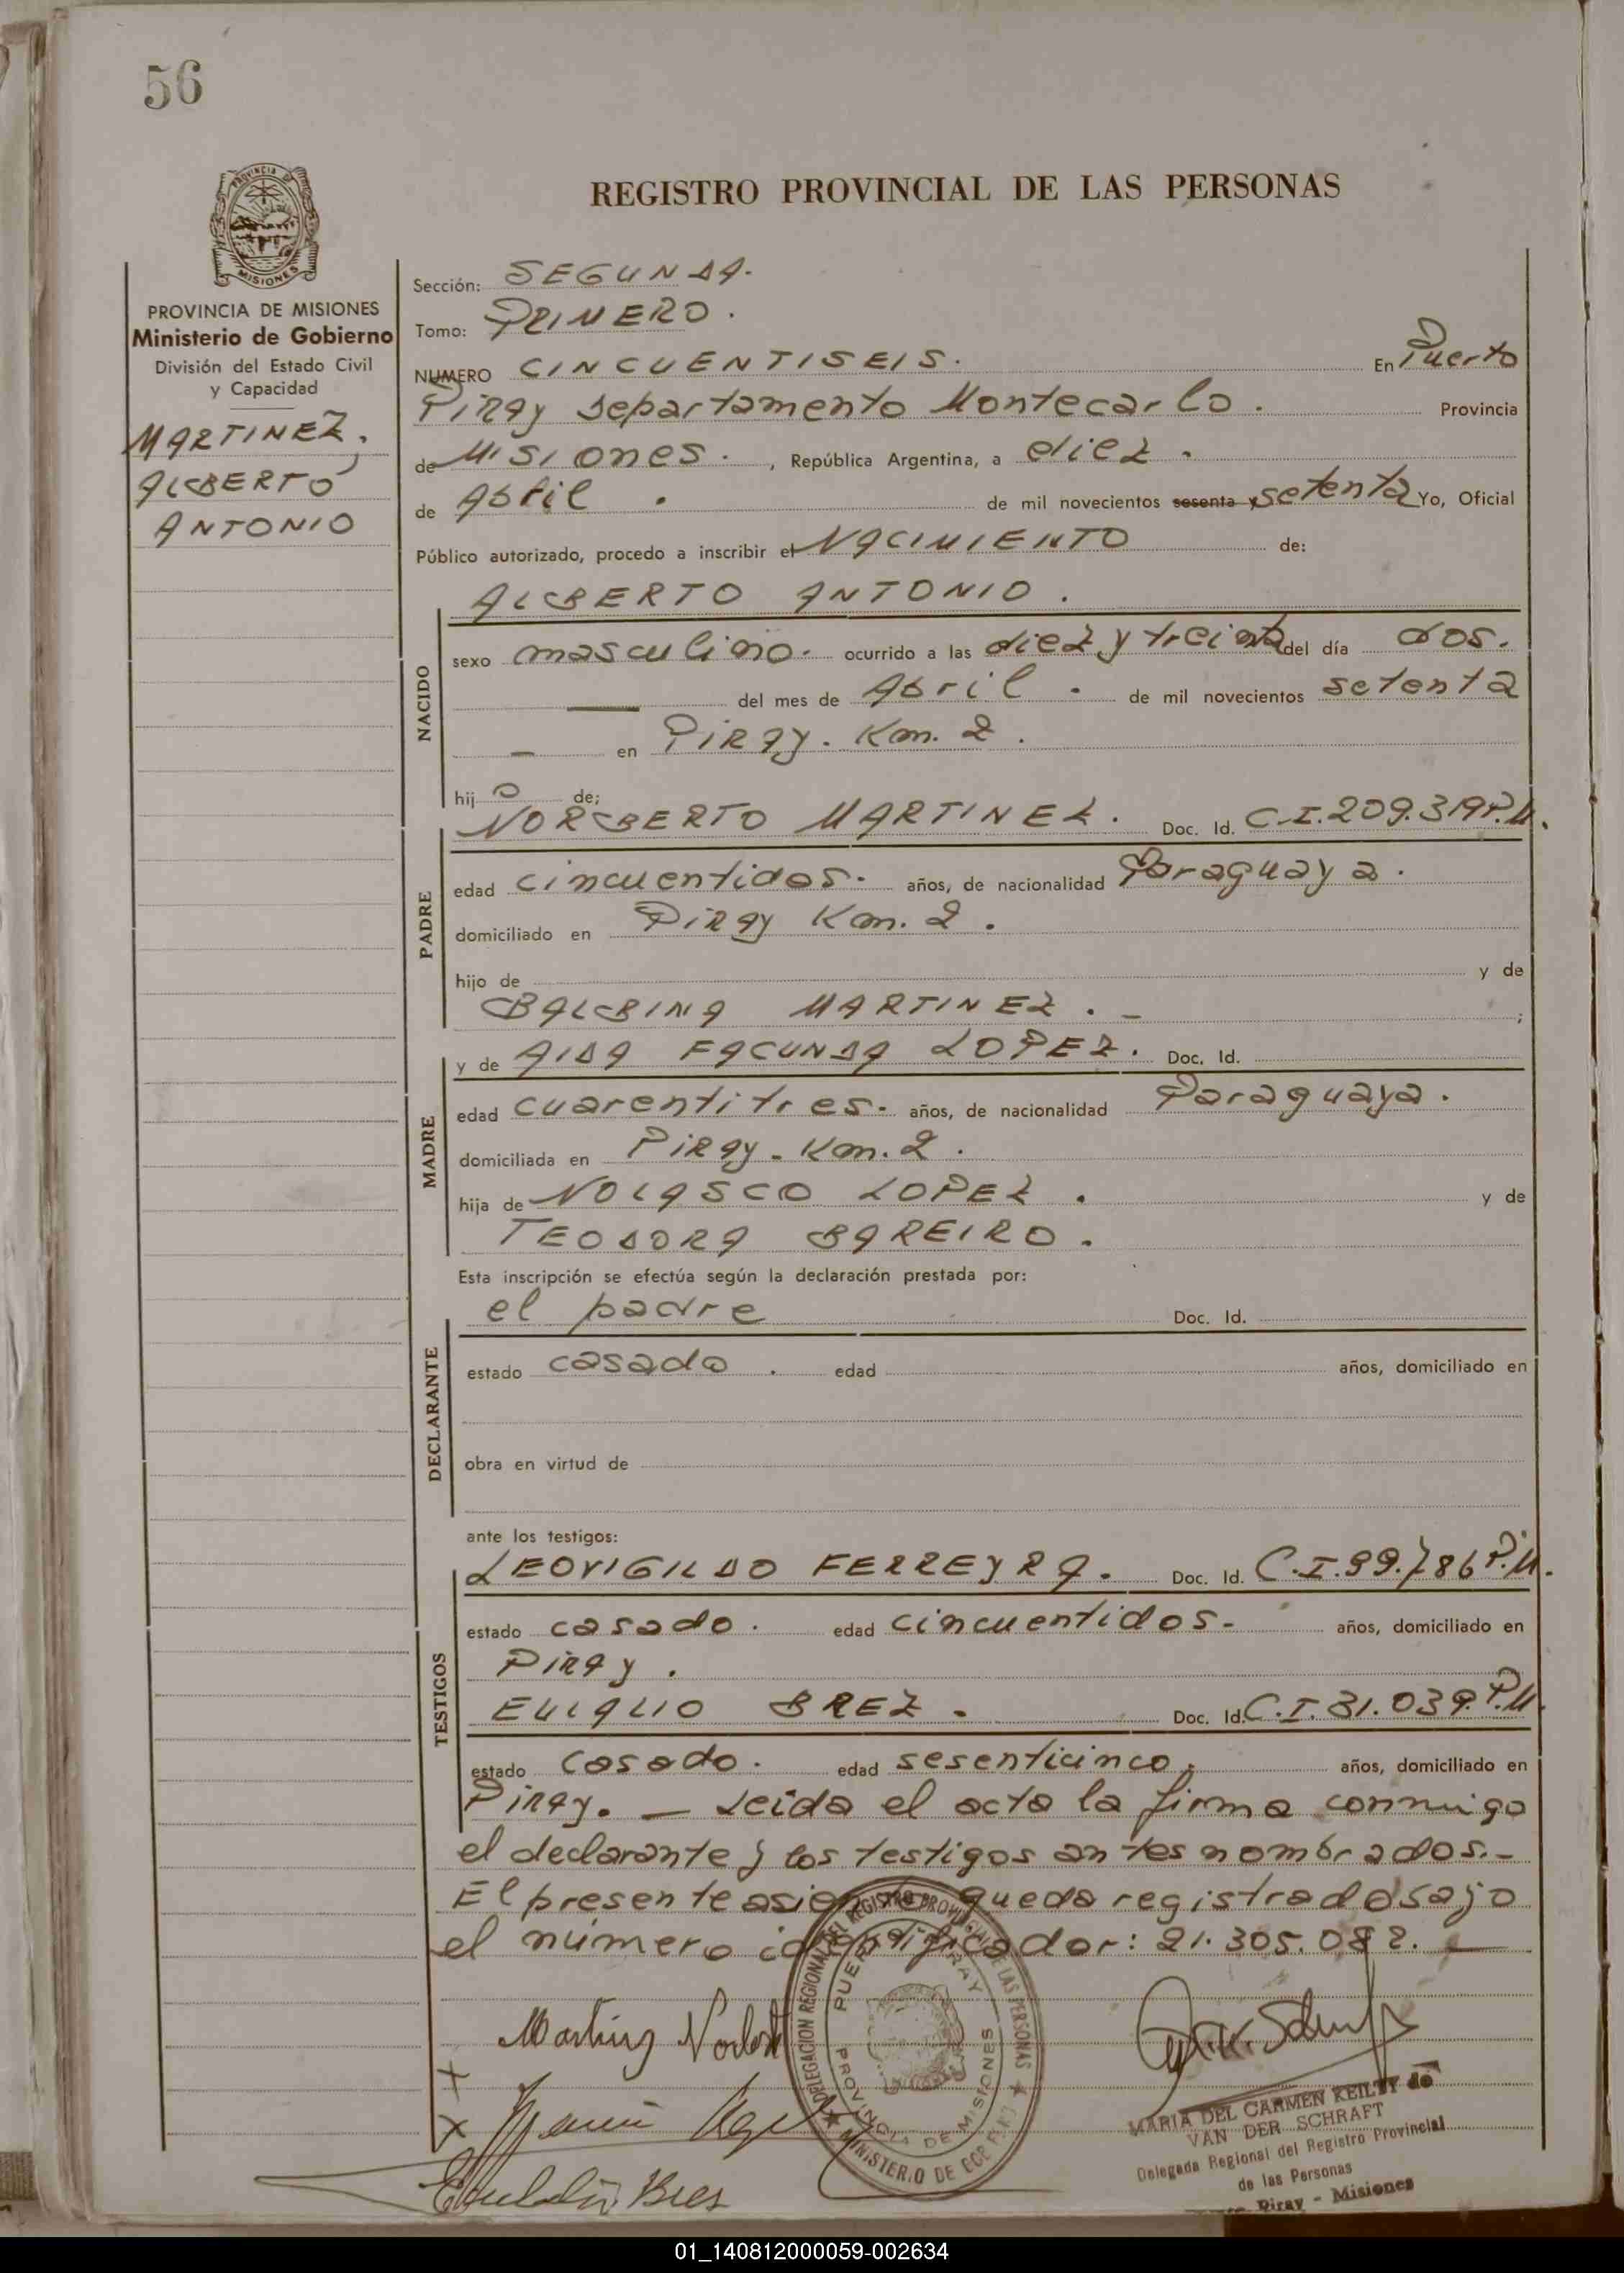 56
PROVINCIA DE
MISIONES
PROVINCIA DE MISIONES
Ministerio de Gobierno
División del Estado Civil
y Capacidad
MARTINEZ,
ALBERTO
ANTONIO
REGISTRO PROVINCIAL DE LAS PERSONAS
Sección: SEGUNDA.
Tomo: PRIMERO.
NUMERO CINCUENTISEIS. En Puerto
Piray Departamento Montecarlo. Provincia
de Misiones. , República Argentina, a diez.
de Abril. de mil novecientos sesenta y setenta Yo, Oficial
Público autorizado, procedo a inscribir el NACIMIENTO de:
ALBERTO ANTONIO.
NACIDO
sexo masculino. ocurrido a las diez y treinta del día dos.
del mes de Abril. de mil novecientos setenta
— en Piray. Km. 2.
hijo de;
NORBERTO MARTINEZ. Doc. Id. C.I. 209.319 P.M.
PADRE
edad cincuentidos. años, de nacionalidad Paraguaya.
domiciliado en Piray Km. 2.
hijo de y de
BALBINA MARTINEZ. - ;
y de AIDA FACUNDA LOPEZ. Doc. Id.
MADRE
edad cuarentitres. años, de nacionalidad Paraguaya.
domiciliada en Piray - Km. 2.
hija de NOLASCO LOPEZ. y de
TEODORA BAREIRO.
Esta inscripción se efectúa según la declaración prestada por:
el padre Doc. Id.
DECLARANTE
estado casado. edad años, domiciliado en
obra en virtud de
ante los testigos:
LEOVIGILDO FERREYRA. Doc. Id. C.I. 99.786 P.M.
TESTIGOS
estado casado. edad cincuentidos. años, domiciliado en
Piray.
EULALIO BREZ. Doc. Id. C.I. 31.039. P.M.
estado casado. edad sesenticinco. años, domiciliado en
Piray. — Leida el acta la firma conmigo
el declarante y los testigos antes nombrados.-
El presente asiento queda registrado bajo
el número identificador: 21.305.082. —
Martinez Norberto
DELEGACION REGIONAL DEL REGISTRO PROVINCIAL DE LAS PERSONAS
PUERTO PIRAY
PROVINCIA DE MISIONES
MINISTERIO DE
MARIA DEL CARMEN KEILTY de
VAN DER SCHRAFT
Delegada Regional del Registro Provincial
de las Personas
Piray - Misiones
01_140812000059-002634